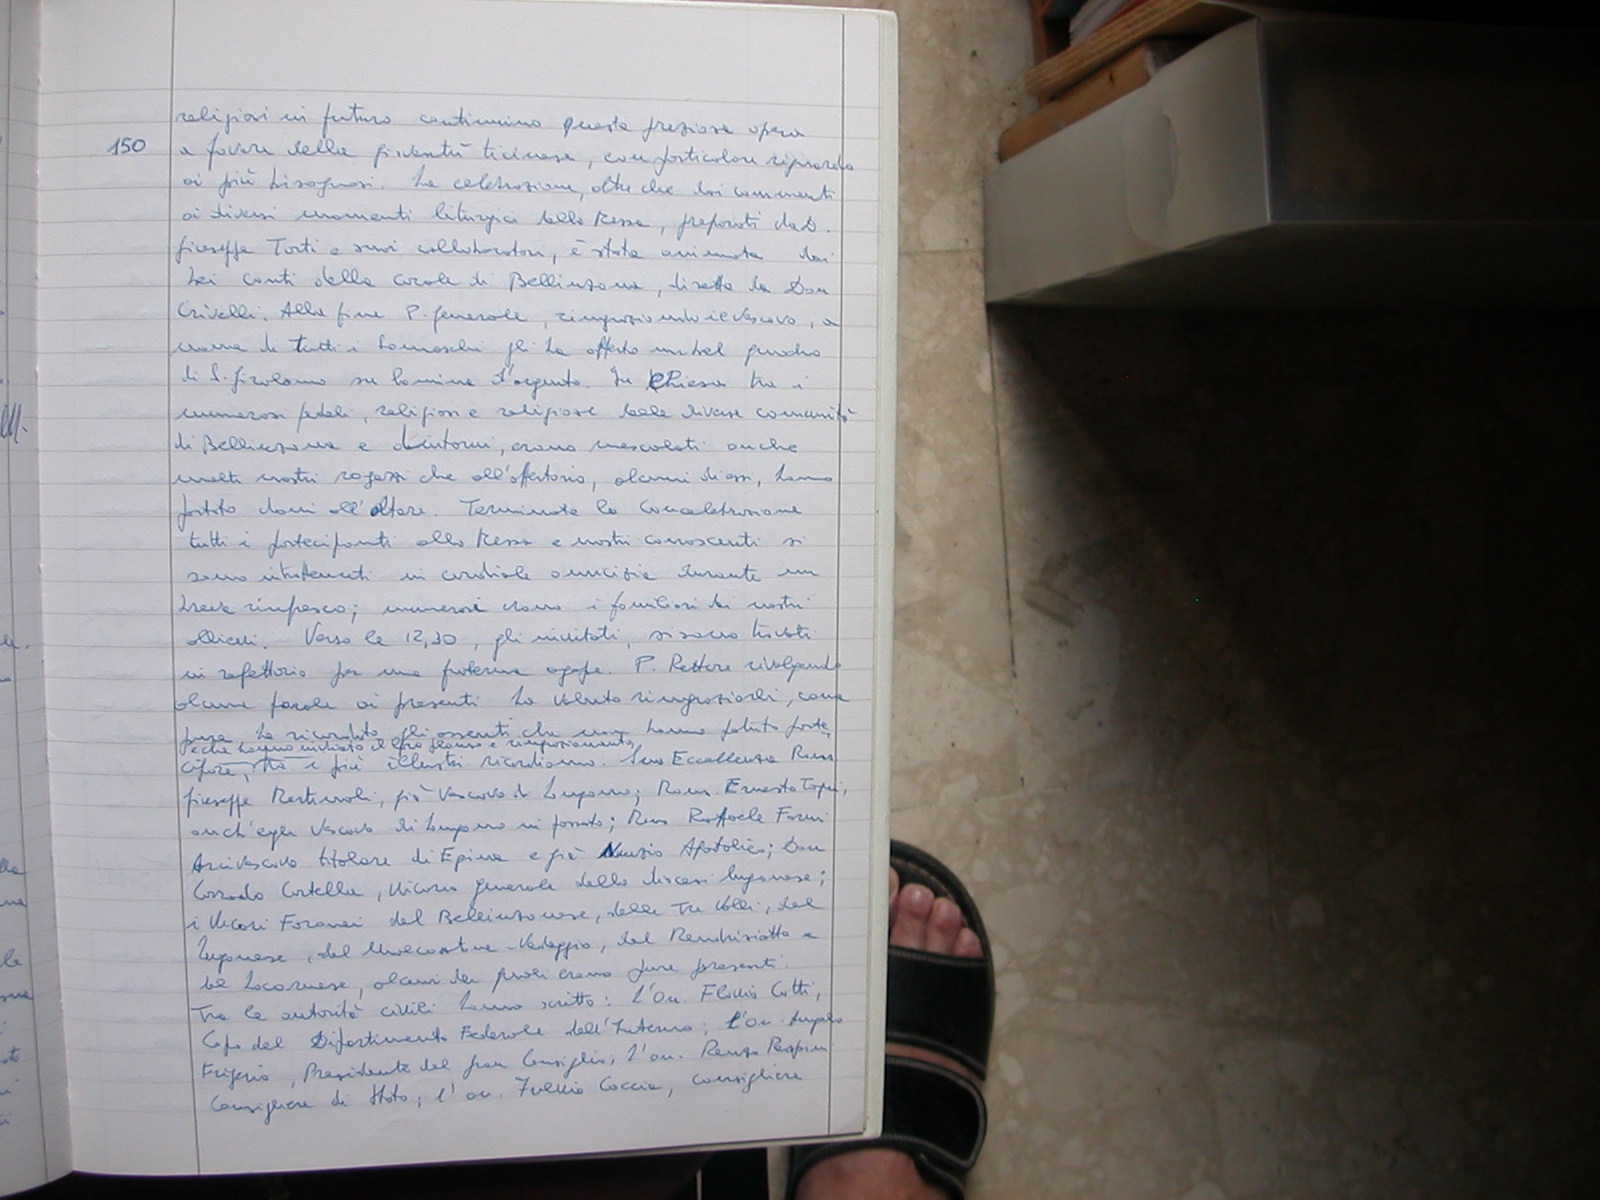 religiosi in futuro continuino questa preziosa opera
150
a favore della gioventù ticinese, con particolare riguardo
ai più bisognosi. La celebrazione, oltre che dai commenti
ai diversi momenti liturgici della Messa, preparati da D.
Giuseppe Torti e suoi collaboratori, è stata animata dai
bei canti della corale di Bellinzona, diretta da Don
Crivelli. Alla fine P. Generale, ringraziando il Vescovo, a
nome di tutti i Somaschi gli ha offerto un bel quadro
di S. Girolamo su lamina d'argento. In Chiesa tra i
numerosi fedeli, religiosi e religiose delle diverse comunità
di Bellinzona e dintorni, erano mescolati anche
molti nostri ragazzi che all'offertorio, alcuni di essi, hanno
portato doni all'altare. Terminata la Concelebrazione
tutti i partecipanti alla Messa e nostri conoscenti si
sono intrattenuti in cordiale amicizia durante un
breve rinfresco; numerosi erano i familiari dei nostri
allievi. Verso le 12,30, gli invitati, si sono trovati
in refettorio per una fraterna agape. P. Rettore rivolgendo
alcune parole ai presenti ha voluto ringraziarli, come
pure ha ricordato gli assenti che non hanno potuto parte
e che hanno inviato il loro plauso e ringraziamento,
cipare, tra i più illustri ricordiamo: Sua Eccellenza Mons
Giuseppe Martinoli, già Vescovo di Lugano; Mons. Ernesto Togni,
anch'egli Vescovo di Lugano in passato; Mons Raffaele Forni
Arcivescovo titolare di Egina e già Nunzio Apostolico; Don
Corrado Cortella, Vicario generale della diocesi luganese;
i Vicari Foranei del Bellinzonese, delle Tre Valli, del
Luganese, del Malcantone-Vedeggio, del Mendrisiotto e
del Locarnese, alcuni dei quali erano pure presenti.
Tra le autorità civili hanno scritto: l'On. Flavio Cotti,
Capo del Dipartimento Federale dell'Interno; l'On. Angelo
Frigerio, Presidente del Gran Consiglio; l'on. Renzo Respini
Consigliere di Stato; l'on. Fulvio Caccia, consigliere